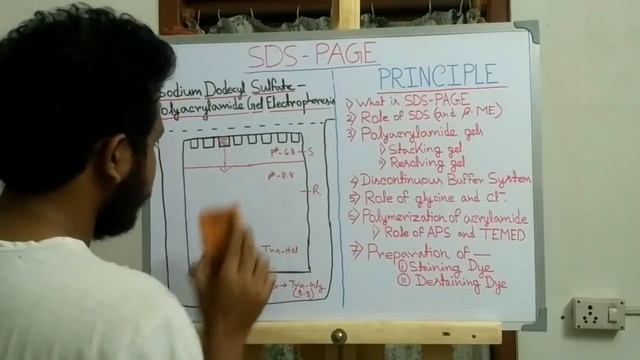 SDS-PAGE
Sodium Dodecyl Sulfate-
Polyacrylamide Gel Electrophoresis
pH-6.8 S
pH-8.8
R
Tris-Hcl
→ Tris-Gly
(8.3)
PRINCIPLE
1) What is SDS-PAGE
2) Role of SDS (and β-ME)
3) Polyacrylamide gels
i) Stacking gel
ii) Resolving gel
4) Discontinuous Buffer System
5) Role of glycine and Cl-.
6) Polymerization of acrylamide
i) Role of APS and TEMED
7) Preparation of —
i) Staining Dye
ii) Destaining Dye